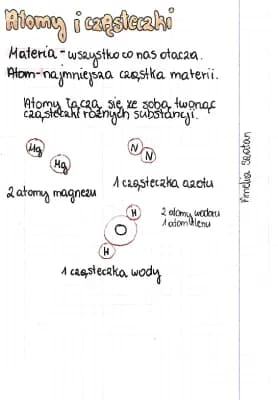 Atomy i cząsteczki
Materia - wszystko co nas otacza.
Atom - najmniejsza cząstka materii.
Atomy łączą się ze sobą tworząc
cząsteczki różnych substancji.
Mg
Mg
2 atomy magnezu
N N
1 cząsteczka azotu
H
O
H
2 atomy wodoru
1 atom tlenu
1 cząsteczka wody